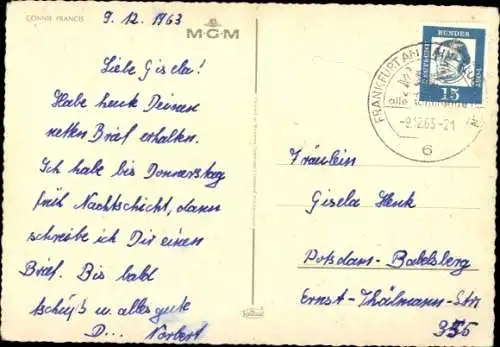 CONNIE FRANCIS
9.12.1963
M-G-M
Liebe Gisela!
Habe heute Deinen
netten Brief erhalten.
Ich habe bis Donnerstag
früh Nachtschicht, dann
schreibe ich Dir einen
Brief. Bis bald
tschüß u. alles gute
D... Norbert
DEUTSCHE BUNDESPOST
15
FRANKFURT AM MAIN
-9.12.63-21
6
Fräulein
Gisela Henk
Potsdam-Babelsberg
Ernst-Thälmann-Str